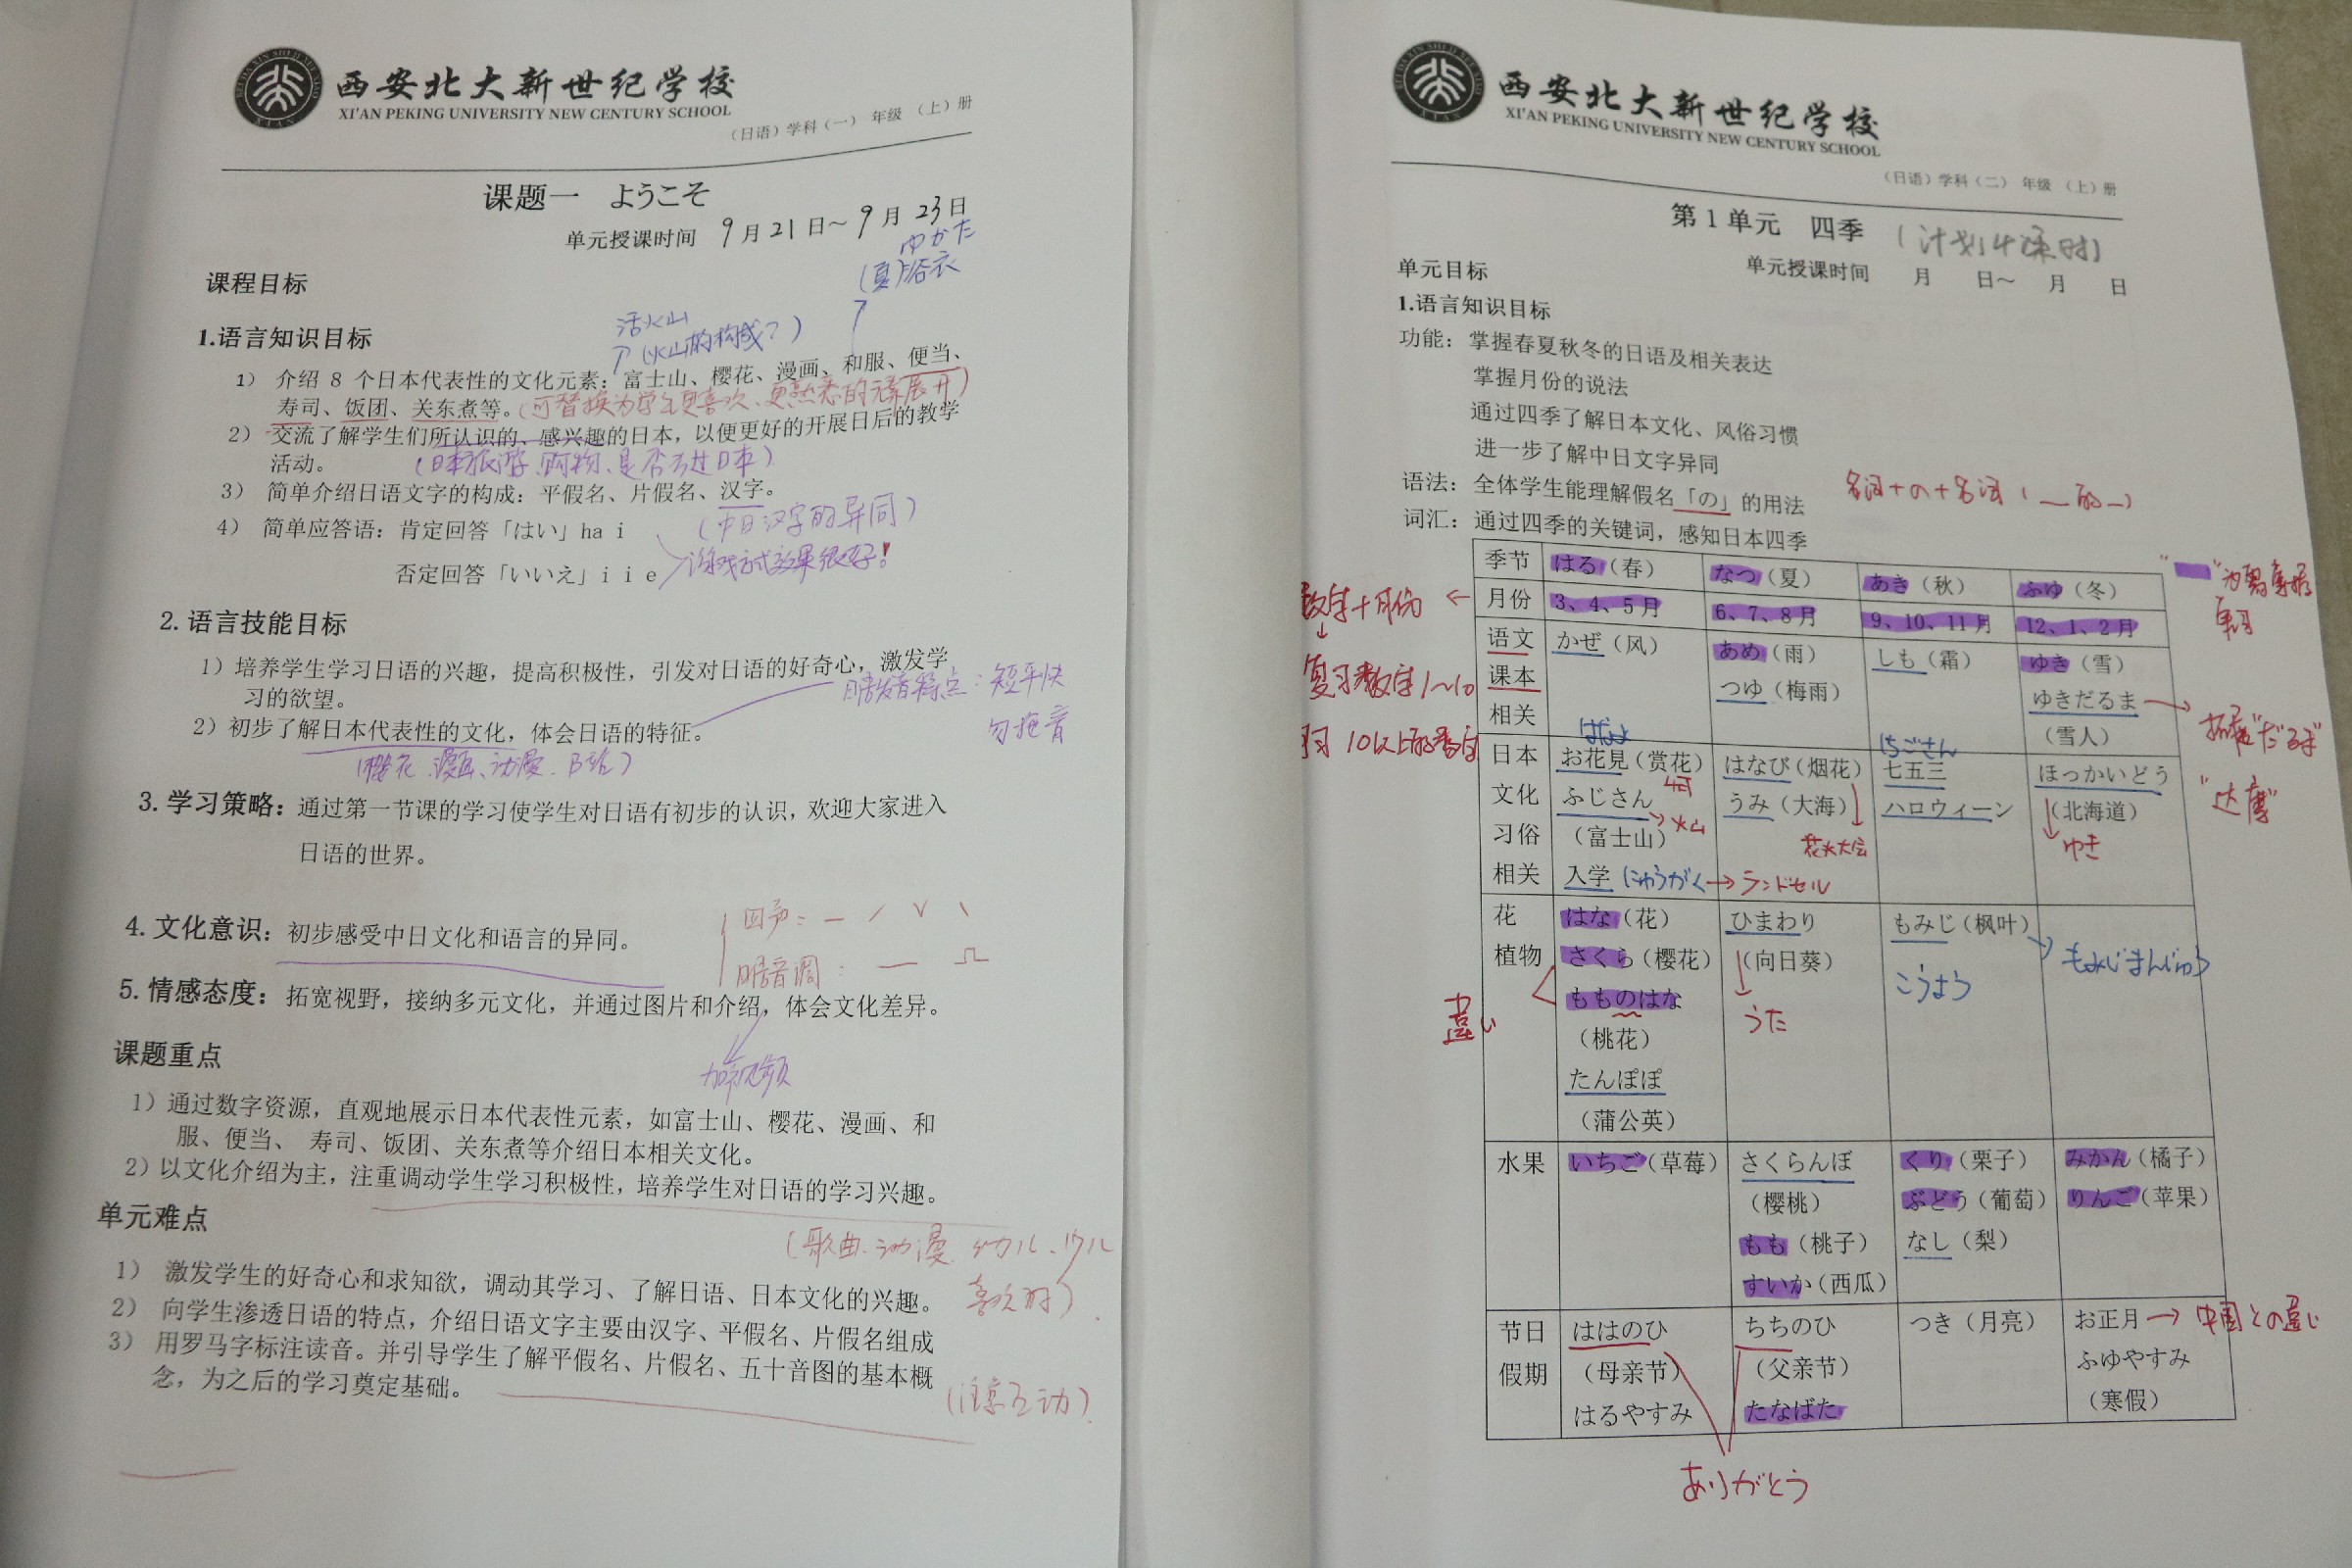 西安北大新世纪学校
XI'AN PEKING UNIVERSITY NEW CENTURY SCHOOL
（日语）学科（一） 年级 （上）册
课题一 ようこそ
单元授课时间 9月21日～9月23日
ゆかた
(夏)浴衣
课程目标
活火山
(火山的构成？)
1.语言知识目标
1） 介绍 8 个日本代表性的文化元素：富士山、樱花、漫画、和服、便当、
寿司、饭团、关东煮等。(可替换为学生更喜欢、更熟悉的元素展开)
2） 交流了解学生们所认识的、感兴趣的日本，以便更好的开展日后的教学
活动。 (日本旅游、购物、是否去过日本)
3） 简单介绍日语文字的构成：平假名、片假名、汉字。
(中日汉字的异同)
4） 简单应答语：肯定回答「はい」hai
游戏方式效果很好！
否定回答「いいえ」iie
2. 语言技能目标
1）培养学生学习日语的兴趣，提高积极性，引发对日语的好奇心，激发学
习的欲望。
日语发音特点：短平快
勿拖音
2）初步了解日本代表性的文化，体会日语的特征。
(樱花、漫画、动漫、B站)
3. 学习策略：通过第一节课的学习使学生对日语有初步的认识，欢迎大家进入
日语的世界。
四声：一 ／ ∨ ＼
4. 文化意识：初步感受中日文化和语言的异同。
日语音调：
5. 情感态度：拓宽视野，接纳多元文化，并通过图片和介绍，体会文化差异。
加视频
课题重点
1）通过数字资源，直观地展示日本代表性元素，如富士山、樱花、漫画、和
服、便当、 寿司、饭团、关东煮等介绍日本相关文化。
2）以文化介绍为主，注重调动学生学习积极性，培养学生对日语的学习兴趣。
单元难点
(歌曲、动漫、幼儿、少儿
喜欢的)
1） 激发学生的好奇心和求知欲，调动其学习、了解日语、日本文化的兴趣。
2） 向学生渗透日语的特点，介绍日语文字主要由汉字、平假名、片假名组成
3） 用罗马字标注读音。并引导学生了解平假名、片假名、五十音图的基本概
念，为之后的学习奠定基础。
(注意互动)
西安北大新世纪学校
XI'AN PEKING UNIVERSITY NEW CENTURY SCHOOL
（日语）学科（二） 年级 （上）册
第 1 单元 四季 (计划4课时)
单元授课时间 月 日～ 月 日
单元目标
1.语言知识目标
功能：掌握春夏秋冬的日语及相关表达
掌握月份的说法
通过四季了解日本文化、风俗习惯
进一步了解中日文字异同
语法：全体学生能理解假名「の」的用法
名词+の+名词(__的__)
词汇：通过四季的关键词，感知日本四季
季节 はる（春） なつ（夏） あき（秋） ふゆ（冬）
月份 3、4、5月 6、7、8月 9、10、11月 12、1、2月
数字+月份
复习数字1～10
10以上的数字
语文课本相关 かぜ（风） あめ（雨） しも（霜） ゆき（雪）
つゆ（梅雨） ゆきだるま
（雪人）
拓展"だるま"
"达摩"
日本文化习俗相关 お花見（赏花） はなび（烟花） 七五三 ほっかいどう
ふじさん うみ（大海） ハロウィーン （北海道）
（富士山） 火山 花火大会 ゆき
入学 にゅうがく→ランドセル
花植物 はな（花） ひまわり もみじ（枫叶）
さくら（樱花） （向日葵） こうよう もみじまんじゅう
もものはな うた
違い
（桃花）
たんぽぽ
（蒲公英）
水果 いちご（草莓） さくらんぼ くり（栗子） みかん（橘子）
（樱桃） ぶどう（葡萄） りんご（苹果）
もも（桃子） なし（梨）
すいか（西瓜）
节日假期 ははのひ ちちのひ つき（月亮） お正月→中国との違い
（母亲节） （父亲节） ふゆやすみ
はるやすみ たなばた （寒假）
ありがとう